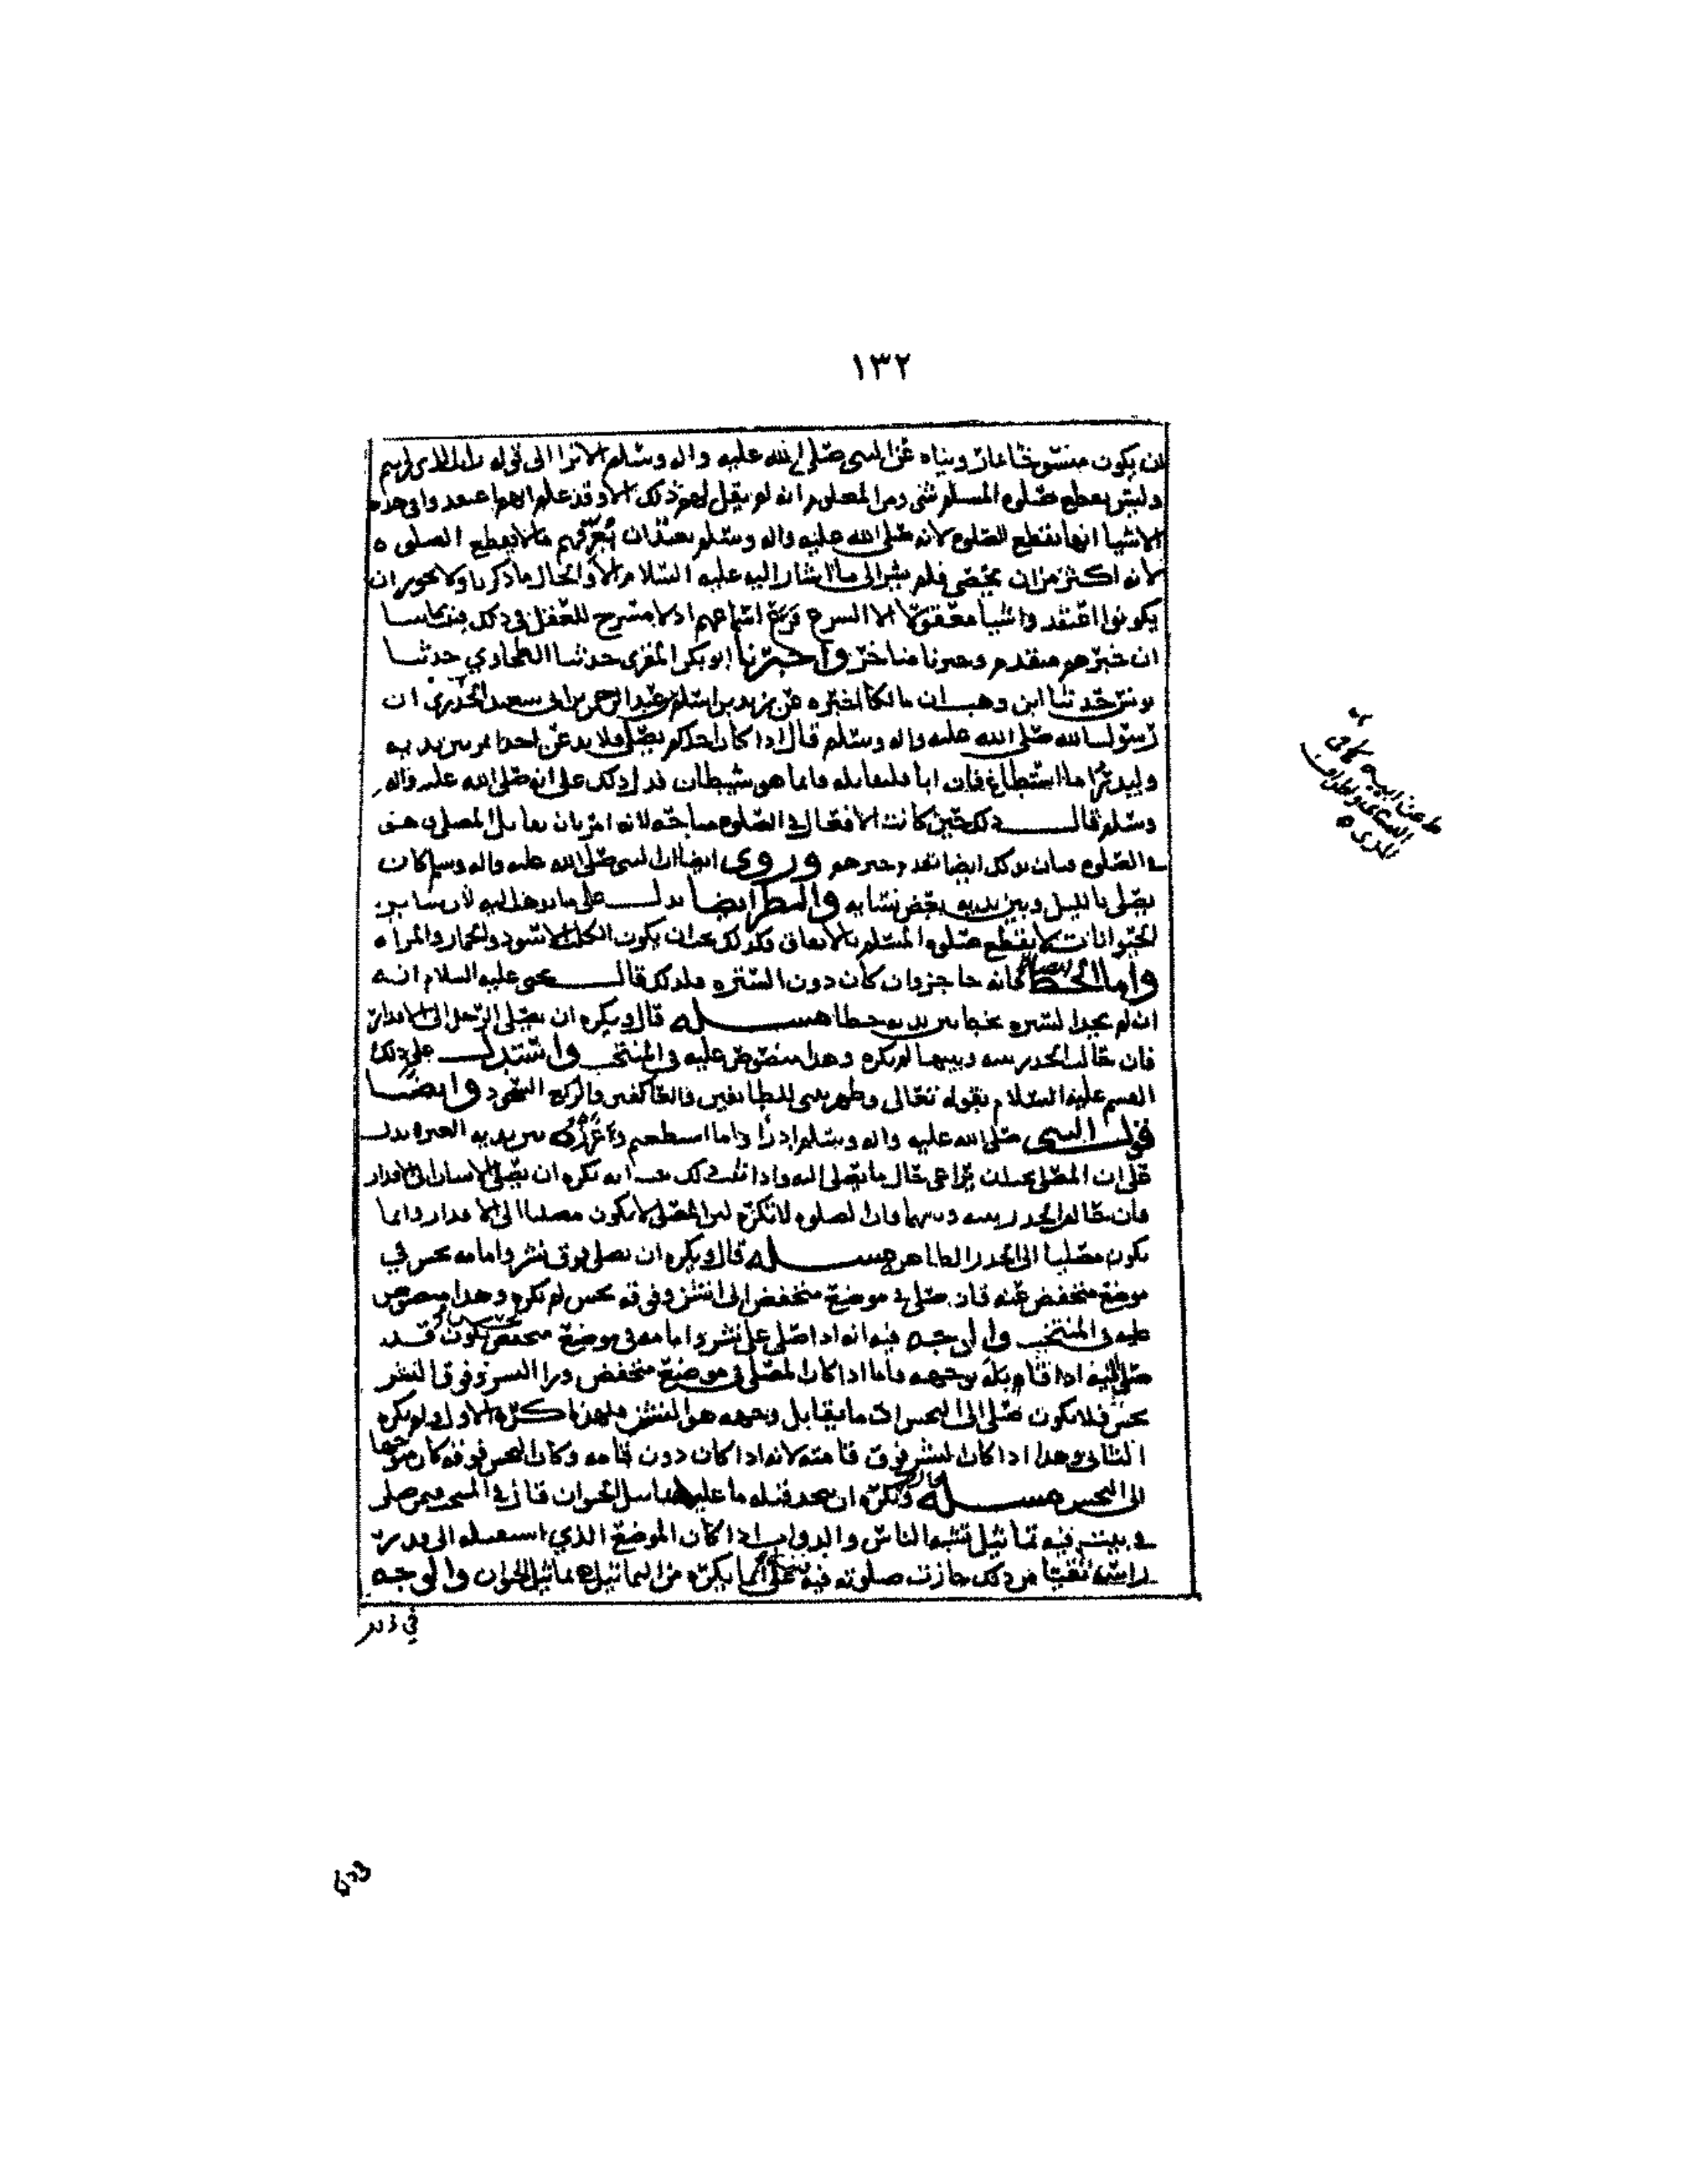 ١٣٢
ان يكون منسوخا بما رويناه عن النبي صلى الله عليه واله وسلم الا ترا الى قوله
وليس يقطع صلوه المسلم شي ومن المعلوم انه لم يقل لهم ذلك الا وقد علم انهم اعتقدوا في هذه
الاشيا انها تقطع الصلوه لانه صلى الله عليه واله وسلم ان يعرفهم مالا يقطع الصلوه
لانه اكثر من ان يحصى فلم يشر الى ما اشار اليه عليه السلام الا والحال ما ذكرنا ولا يجوز ان
يكونوا اعتقدوا شيا الا الشرع قرع اسماعهم اذ لا مسرح للعقل في ذلك
ان خبرهم متقدم وخبرنا متاخر واخبرنا ابو بكر المقري حدثنا الطحاوي حدثنا
يونس حدثنا ابن وهب ان مالكا اخبره عن زيد بن اسلم عن عبد الرحمن بن ابي سعيد الخدري ان
رسول الله صلى الله عليه واله وسلم قال اذا كان احدكم يصلي فلا يدعن احدا يمر بين يديه
وليدرا ما استطاع فان ابا فليقاتله فانما هو شيطان فدل ذلك على انه صلى الله عليه واله
وسلم قال ذلك حين كانت الافعال في الصلوه مباحه لانه امر بان يقاتل المصلي
في الصلوه فبان بذلك ايضا تقدم خبرهم وروي ايضا ان النبي صلى الله عليه واله وسلم كان
يصلي بالليل وبين يديه بعض نسايه والنظر ايضا يدل على ما نذهب اليه لان ساير
الحيوانات لا يقطع صلوه المسلم بالاتفاق فكذلك يجب ان يكون الكلب الاسود والحمار والمراه
واما الخط فانه حاجز وان كان دون الستره فلذلك قال يحيى عليه السلام انه
ان لم يجد الستره يخط بين يديه خطا مسله قال ويكره ان يصلي الرجل الى الاقذار
فان حالت الجدر بينه وبينها لم يكره وهذا منصوص عليه في المنتخب واستدل على ذلك
القسم عليه السلام بقوله تعالى وطهر بيتي للطايفين والعاكفين والركع السجود وايضا
قول النبي صلى الله عليه واله وسلم ادرا واما استطعتم بين يديه يدل
على ان المصلي يجب ان يراعي حال ما يصلي اليه واذا ثبت ذلك ثبت انه يكره ان يصلي الانسان الى الاقذار
فان حالت الجدر بينه وبينها فان الصلوه لا تكره لان المصلي لا يكون مصليا الى الاقذار وانما
يكون مصليا الى الجدر الطاهر مسله قال ويكره ان يصلي فوق نشز وامامه نجس في
موضع منخفض عنه فان صلى في موضع منخفض الى نشز وفوقه نجس لم يكره وهذا منصوص
عليه في المنتخب والوجه فيه انه اذا صلى على نشز وامامه في موضع منخفض نجس يكون قد
صلى اليه اذا قابله بوجهه فاما اذا كان المصلي في موضع منخفض ورا النشز وفوق النشز
نجس فلا يكون صلى الى النجس لان ما يقابل وجهه هو النشز فلهذا كره الاول ولم يكره
الثاني وهذا اذا كان النشز فوق قامته لانه اذا كان دون قامه وكان النجس فوقه كان متوجها
الى النجس مسله قال ويكره ان يصلي قبله ما عليها تماثيل الحيوان قال في المنتخب فيمن صلى
في بيت فيه تماثيل تشبه الناس والدواب اذا كان الموضع الذي استقبله الى
راسه نقيا من ذلك جازت صلوته فيه انما يكره من التماثيل تماثيل الحيوان والوجه
في ذلك